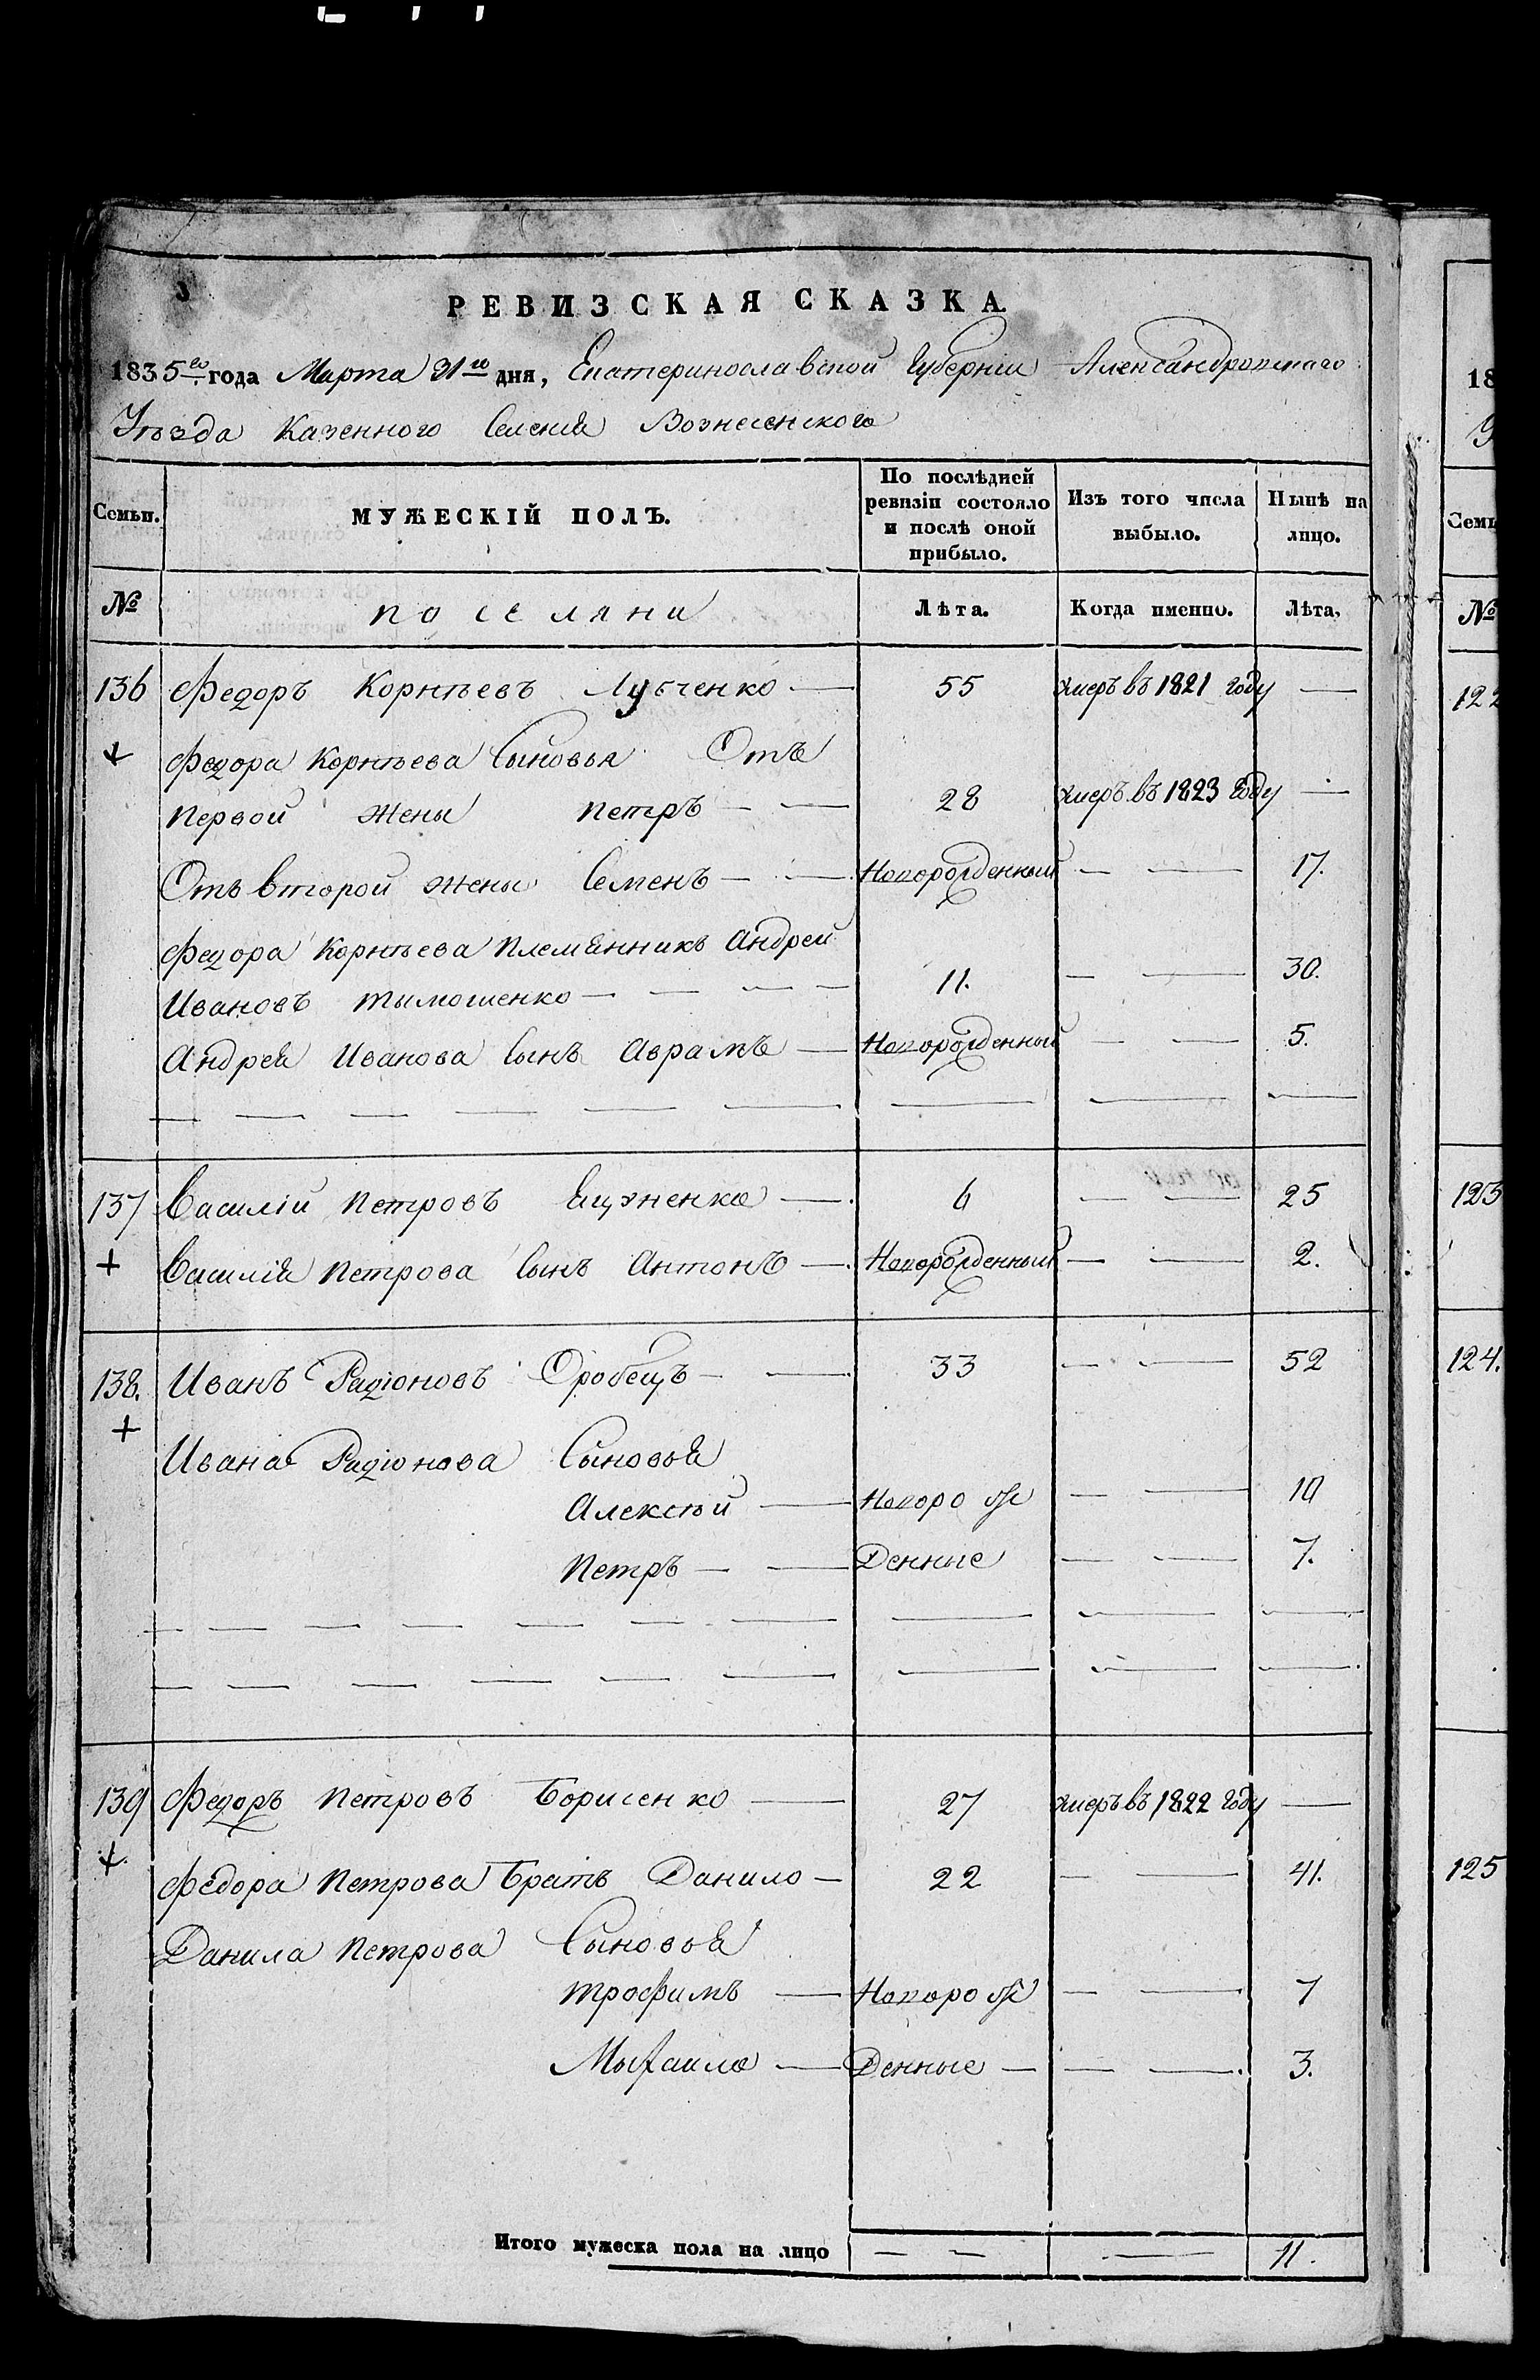 РЕВИЗСКАЯ СКАЗКА.
1835го года Марта 31го дня, Екатеринославской Губерніи Александровскаго
Уѣзда Казенного Селенія Вознесенского
Семьи.
МУЖЕСКІЙ ПОЛЪ.
По послѣдней ревизіи состояло и послѣ оной прибыло.
Изъ того числа выбыло.
Нынѣ на лицо.
№ поселяни Лѣта. Когда именно. Лѣта.
136 Федоръ Корнѣевъ — 55 умеръ въ 1821 году —
Федора Корнѣева Сыновья Отъ
первой жены петръ — — 28 умеръ въ 1823 году —
Отъ второй жены Семенъ — — Новорожденный — — 17.
Федора Корнѣева племянникъ Андрей
Ивановъ тымошенко — — — — 11. — — 30.
Андрея Иванова Сынъ Аврамъ — Новорожденный — — 5.
137 Василій петровъ — 6 — — 25
+ Василія петрова Сынъ Антонъ — Новорожденный — — 2.
138. Иванъ Радіоновъ Оробецъ — — 33 — — 52
+
Ивана Радіонова Сыновья
Алексѣй — Новорож — — 10
петръ — — Денные — — 7.
139 Федоръ петровъ Борисенко — 27 умеръ въ 1822 году —
+ Федора петрова Братъ Данило — 22 — — 41.
Данила петрова Сыновья
трофимъ — Новорож — — 7
Мыхаило — Денные — — — 3.
Итого мужеска пола на лицо — — — 11.
18
У
Семь
№
122
123
124.
125